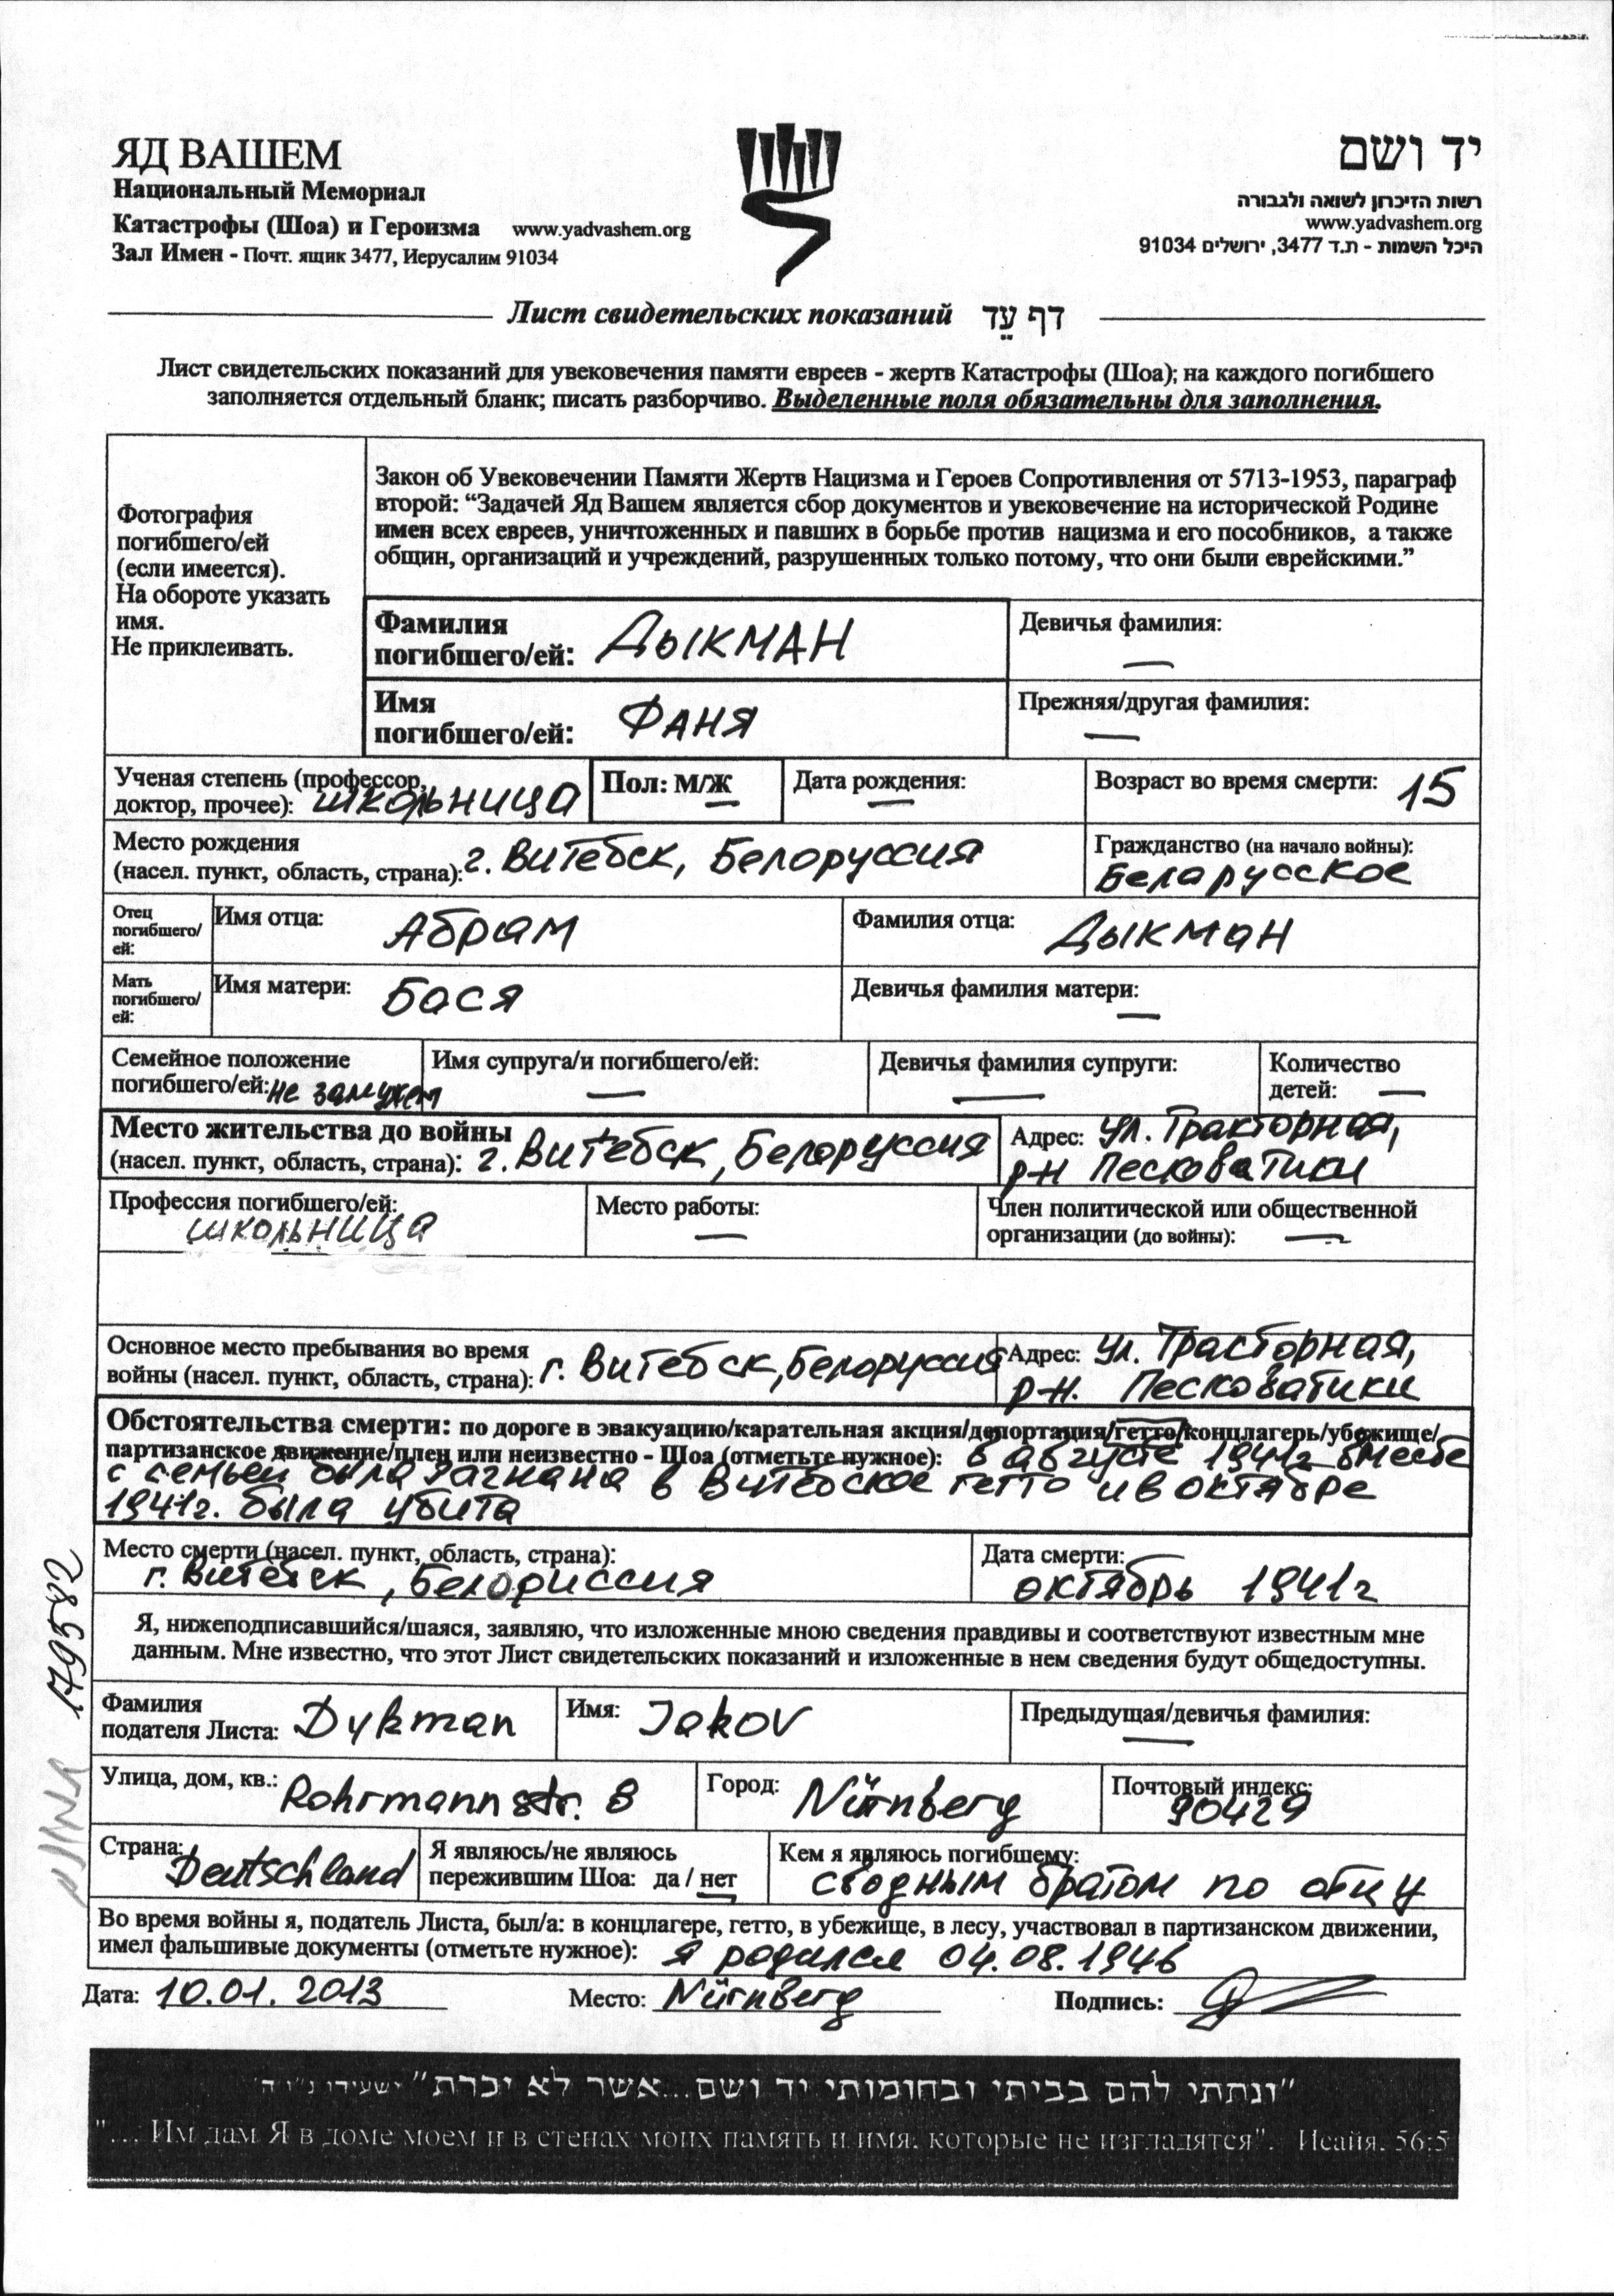 ЯД ВАШЕМ
Национальный Мемориал
Катастрофы (Шоа) и Героизма www.yadvashem.org
Зал Имен - Почт. ящик 3477, Иерусалим 91034
יד ושם
רשות הזיכרון לשואה ולגבורה
www.yadvashem.org
היכל השמות - ת.ד 3477, ירושלים 91034
Лист свидетельских показаний דף עֵד
Лист свидетельских показаний для увековечения памяти евреев - жертв Катастрофы (Шоа); на каждого погибшего
заполняется отдельный бланк; писать разборчиво. Выделенные поля обязательны для заполнения.
Фотография
погибшего/ей
(если имеется).
На обороте указать
имя.
Не приклеивать.
Закон об Увековечении Памяти Жертв Нацизма и Героев Сопротивления от 5713-1953, параграф
второй: “Задачей Яд Вашем является сбор документов и увековечение на исторической Родине
имен всех евреев, уничтоженных и павших в борьбе против нацизма и его пособников, а также
общин, организаций и учреждений, разрушенных только потому, что они были еврейскими.”
Фамилия
погибшего/ей: ДЫКМАН
Девичья фамилия: —
Имя
погибшего/ей: ФАНЯ
Прежняя/другая фамилия: —
Ученая степень (профессор,
доктор, прочее): школьница
Пол: М/Ж
Дата рождения: —
Возраст во время смерти: 15
Место рождения
(насел. пункт, область, страна): г. Витебск, Белоруссия
Гражданство (на начало войны):
Беларусское
Отец
погибшего/
ей:
Имя отца: Абрам
Фамилия отца: Дыкман
Мать
погибшего/
ей:
Имя матери: Бася
Девичья фамилия матери: —
Семейное положение
погибшего/ей: не замужем
Имя супруга/и погибшего/ей: —
Девичья фамилия супруги: —
Количество
детей: —
Место жительства до войны
(насел. пункт, область, страна): г. Витебск, Белоруссия
Адрес: ул. Тракторная,
р-н Песковатики
Профессия погибшего/ей:
школьница
Место работы: —
Член политической или общественной
организации (до войны): —
Основное место пребывания во время
войны (насел. пункт, область, страна): г. Витебск, Белоруссия
Адрес: ул. Трасторная,
р-н. Песковатики
Обстоятельства смерти: по дороге в эвакуацию/карательная акция/депортация/гетто/концлагерь/убежище/
партизанское движение/плен или неизвестно - Шоа (отметьте нужное): в августе 1941г вместе
с семьей была загнана в Витебское гетто и в октябре
1941г. была убита
Место смерти (насел. пункт, область, страна):
г. Витебск, Белориссия
Дата смерти:
октябрь 1941г
Я, нижеподписавшийся/шаяся, заявляю, что изложенные мною сведения правдивы и соответствуют известным мне
данным. Мне известно, что этот Лист свидетельских показаний и изложенные в нем сведения будут общедоступны.
Фамилия
подателя Листа: Dykman
Имя: Jakov
Предыдущая/девичья фамилия: —
Улица, дом, кв.: Rohrmannstr. 8
Город: Nürnberg
Почтовый индекс:
90429
Страна: Deutschland
Я являюсь/не являюсь
пережившим Шоа: да / нет
Кем я являюсь погибшему:
сводным братом по отцу
Во время войны я, податель Листа, был/а: в концлагере, гетто, в убежище, в лесу, участвовал в партизанском движении,
имел фальшивые документы (отметьте нужное): я родился 04.08.1946
Дата: 10.01.2013 Место: Nürnberg Подпись:
179582
"ונתתי להם בביתי ובחומותי יד ושם...אשר לא יכרת" ישעיהו נ"ו ה'
"... Им дам Я в доме моем и в стенах моих память и имя, которые не изгладятся". Исайя, 56:5